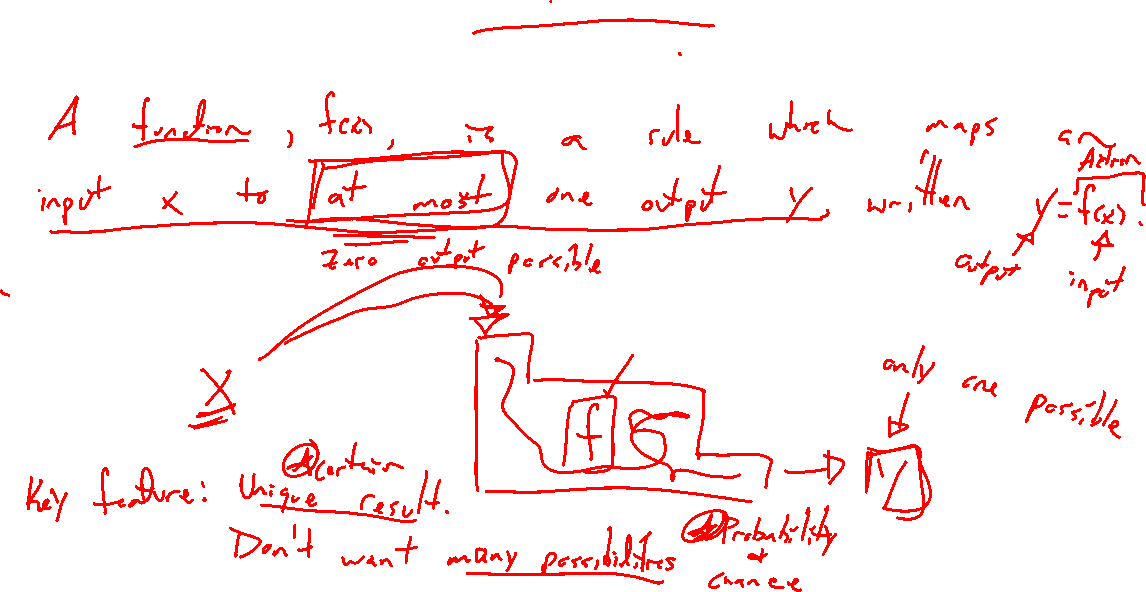 A function, f(x), is a rule which maps an
input x to at most one output y, written y = f(x).
Action
zero output possible
output
input
x
f
only one possible
y
certain
Key feature: Unique result.
Don't want many possibilities
Probability
&
chance